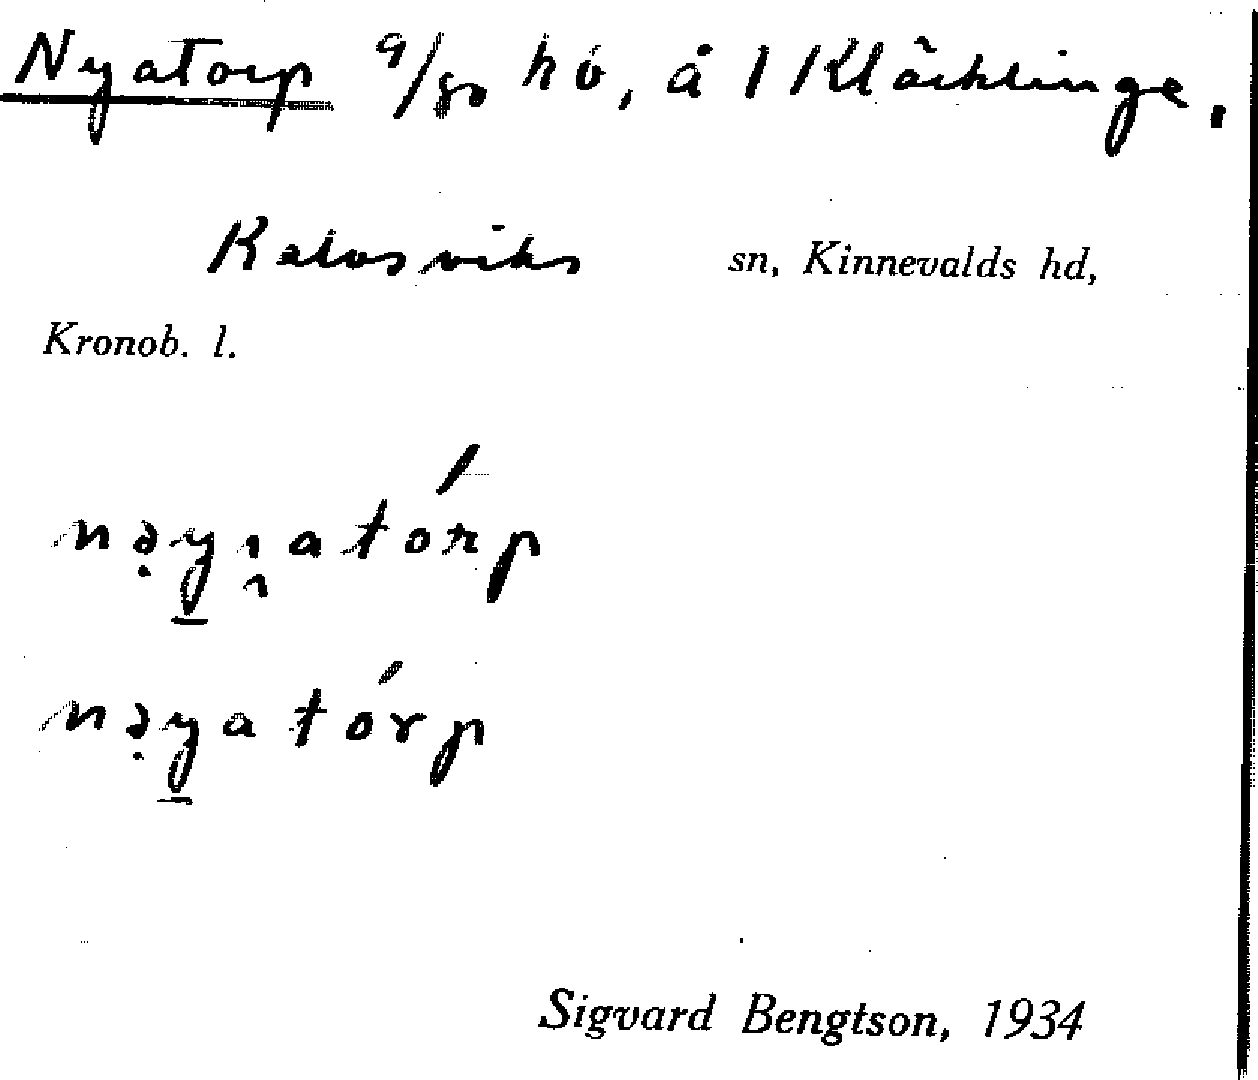 Nyatorp 9/80 hb, å 1 Kläcklinge,
Kalvsviks sn, Kinnevalds hd,
Kronob. l.
nyatórp
Sigvard Bengtson, 1934